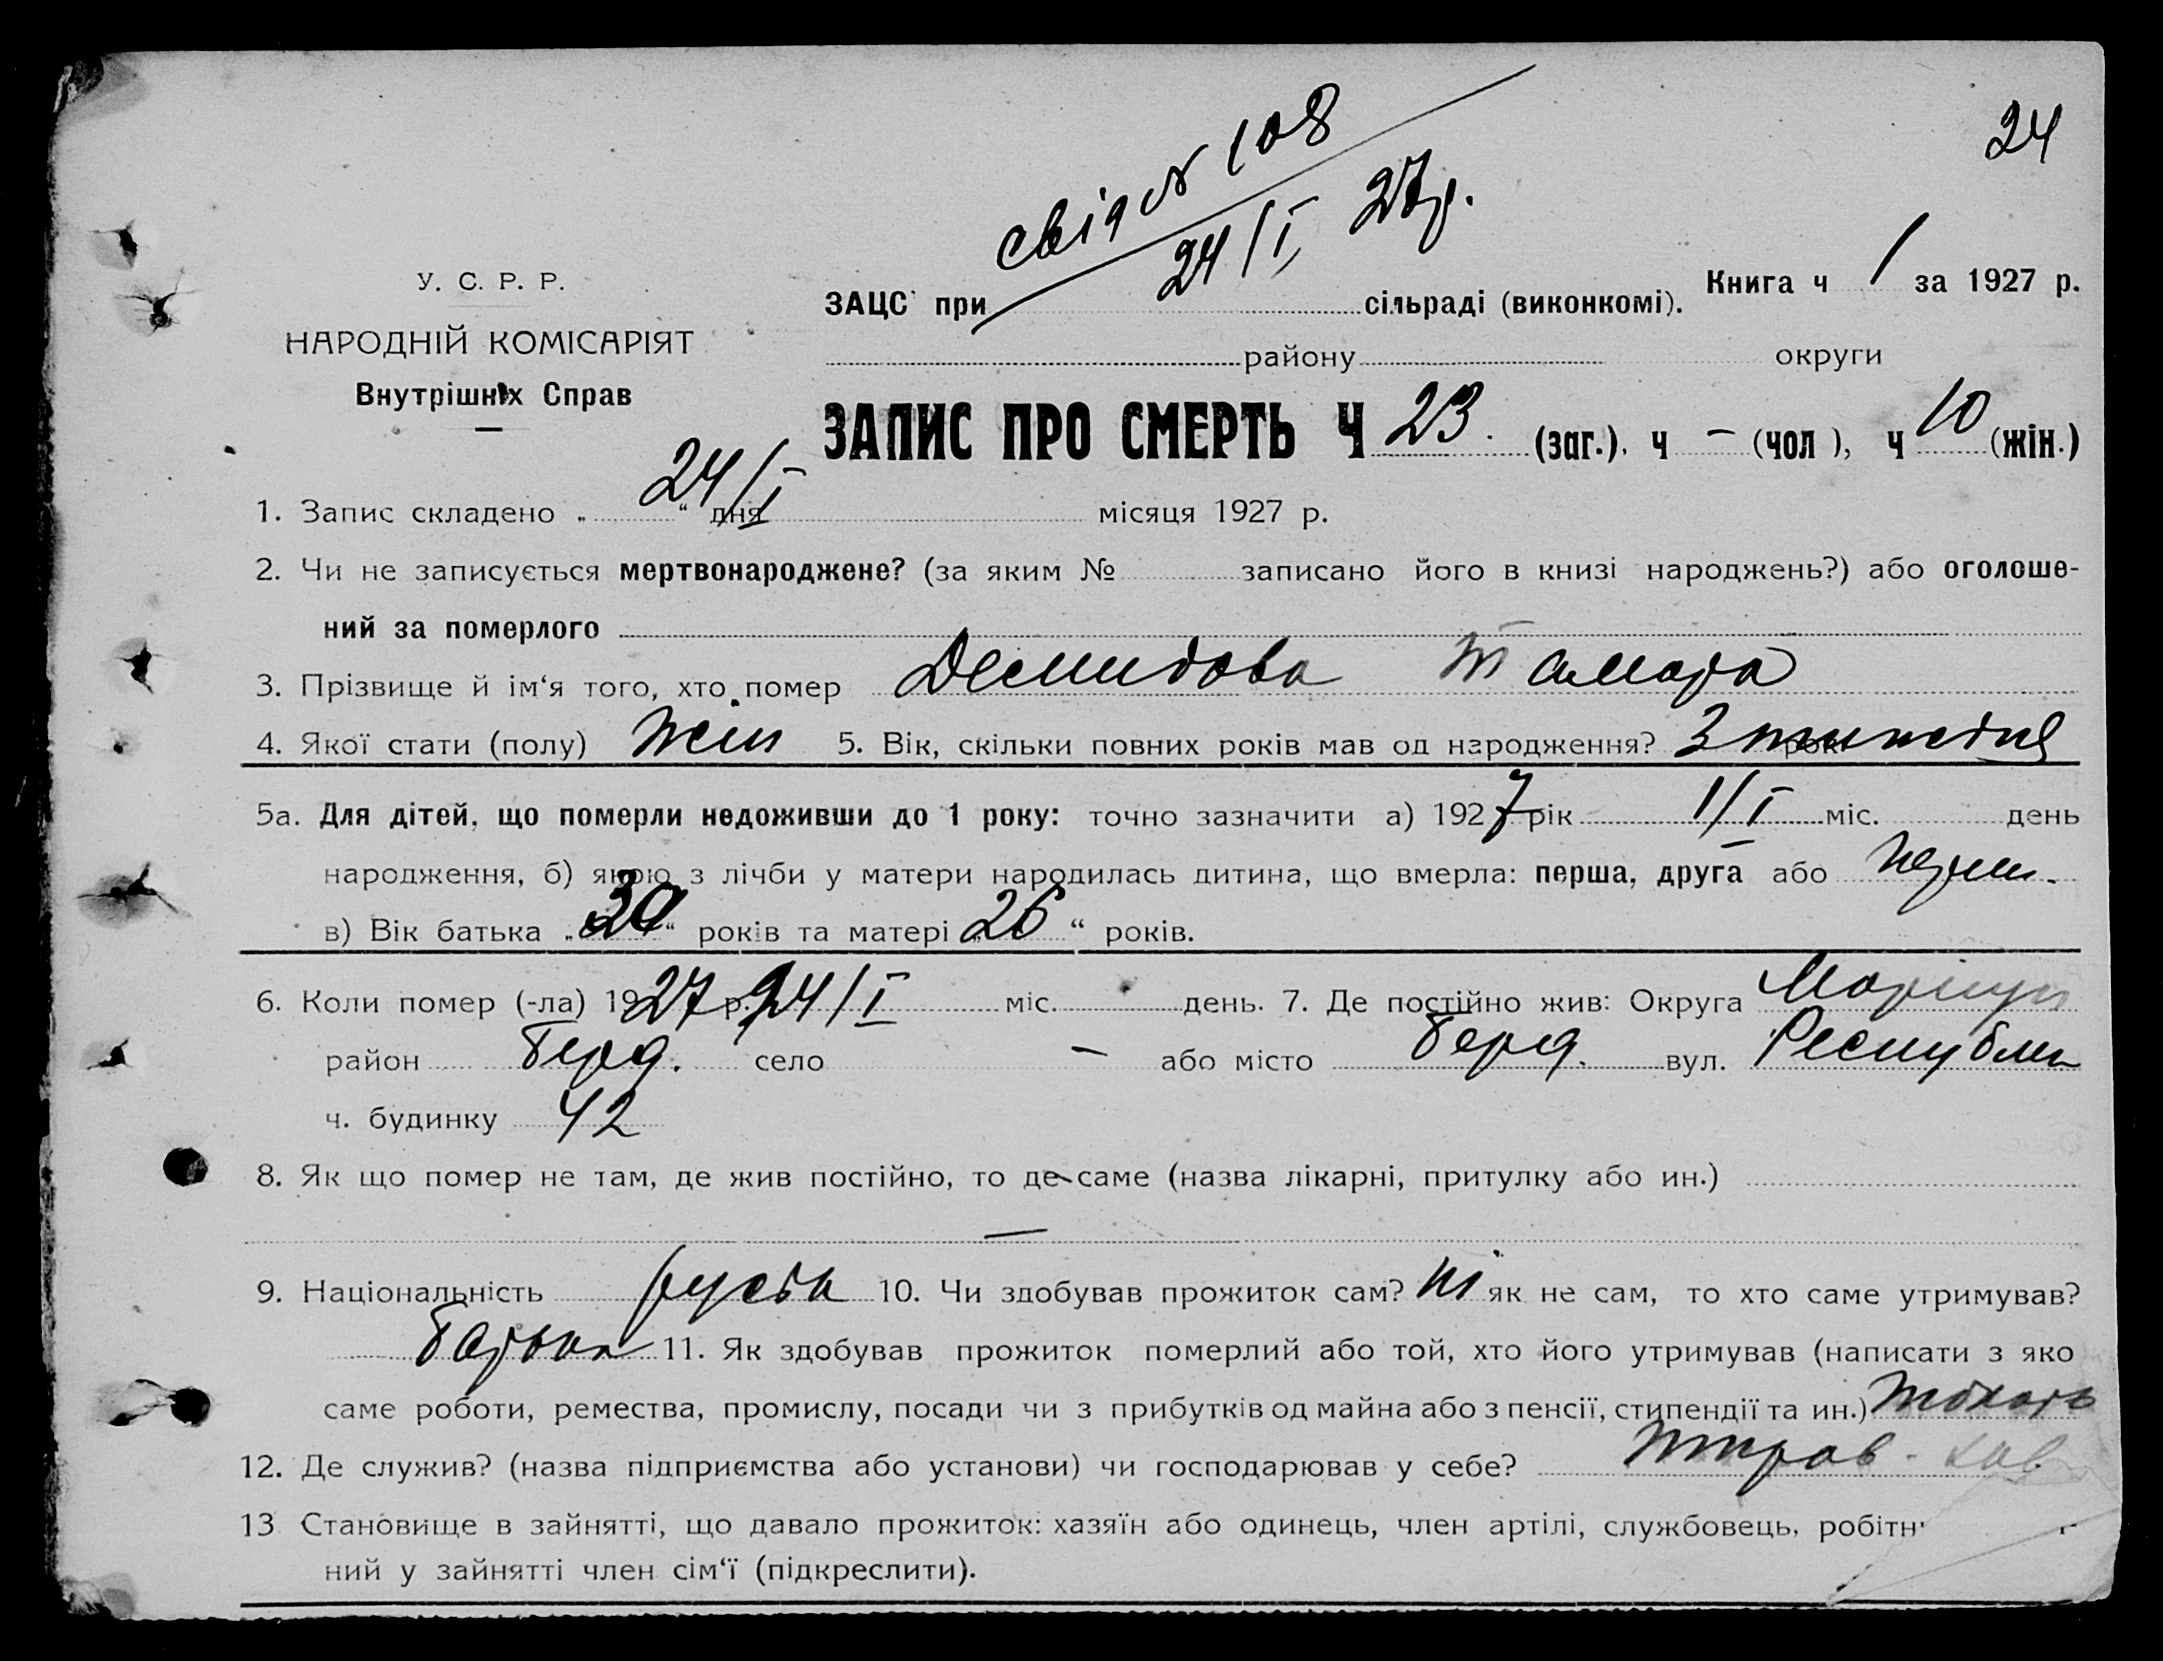 24
свід № 108
24/I 27 р.
У. С. Р. Р.
НАРОДНІЙ КОМІСАРІЯТ
Внутрішніх Справ
Книга ч 1 за 1927 р.
ЗАЦС при сільраді (виконкомі).
району округи
ЗАПИС ПРО СМЕРТЬ Ч 23. (заг.). ч – (чол ), ч 10 (жін.)
1. Запис складено „ 24/I “ дня місяця 1927 р.
2. Чи не записується мертвонароджене? (за яким № записано його в книзі народжень?) або оголоше-
ний за померлого
3. Прізвище й ім‘я того, хто помер Демидова Тамара
4. Якої стати (полу) жін 5. Вік, скільки повних років мав од народження? 3 тижня рок
5а. Для дітей, що померли недоживши до 1 року: точно зазначити а) 1927 рік 1/I міс. день
народження, б) якою з лічби у матери народилась дитина, що вмерла: перша, друга або перш.
в) Вік батька „ 30 “ років та матері „ 26 “ років.
6. Коли помер (-ла) 1927 р. 24/I міс. день. 7. Де постійно жив: Округа Маріуп
район Берд. село — або місто Берд. вул. Республи
ч. будинку 42
8. Як що помер не там, де жив постійно, то де саме (назва лікарні, притулку або ин.)
—
9. Національність руська 10. Чи здобував прожиток сам? ні як не сам, то хто саме утримував?
батько 11. Як здобував прожиток померлий або той, хто його утримував (написати з яко
саме роботи, ремества, промислу, посади чи з прибутків од майна або з пенсії, стипендії та ин.) токарь
12. Де служив? (назва підприємства або установи) чи господарював у себе?
13 Становище в зайнятті, що давало прожиток: хазяїн або одинець, член артілі, службовець, робітн
ний у зайнятті член сім‘ї (підкреслити).